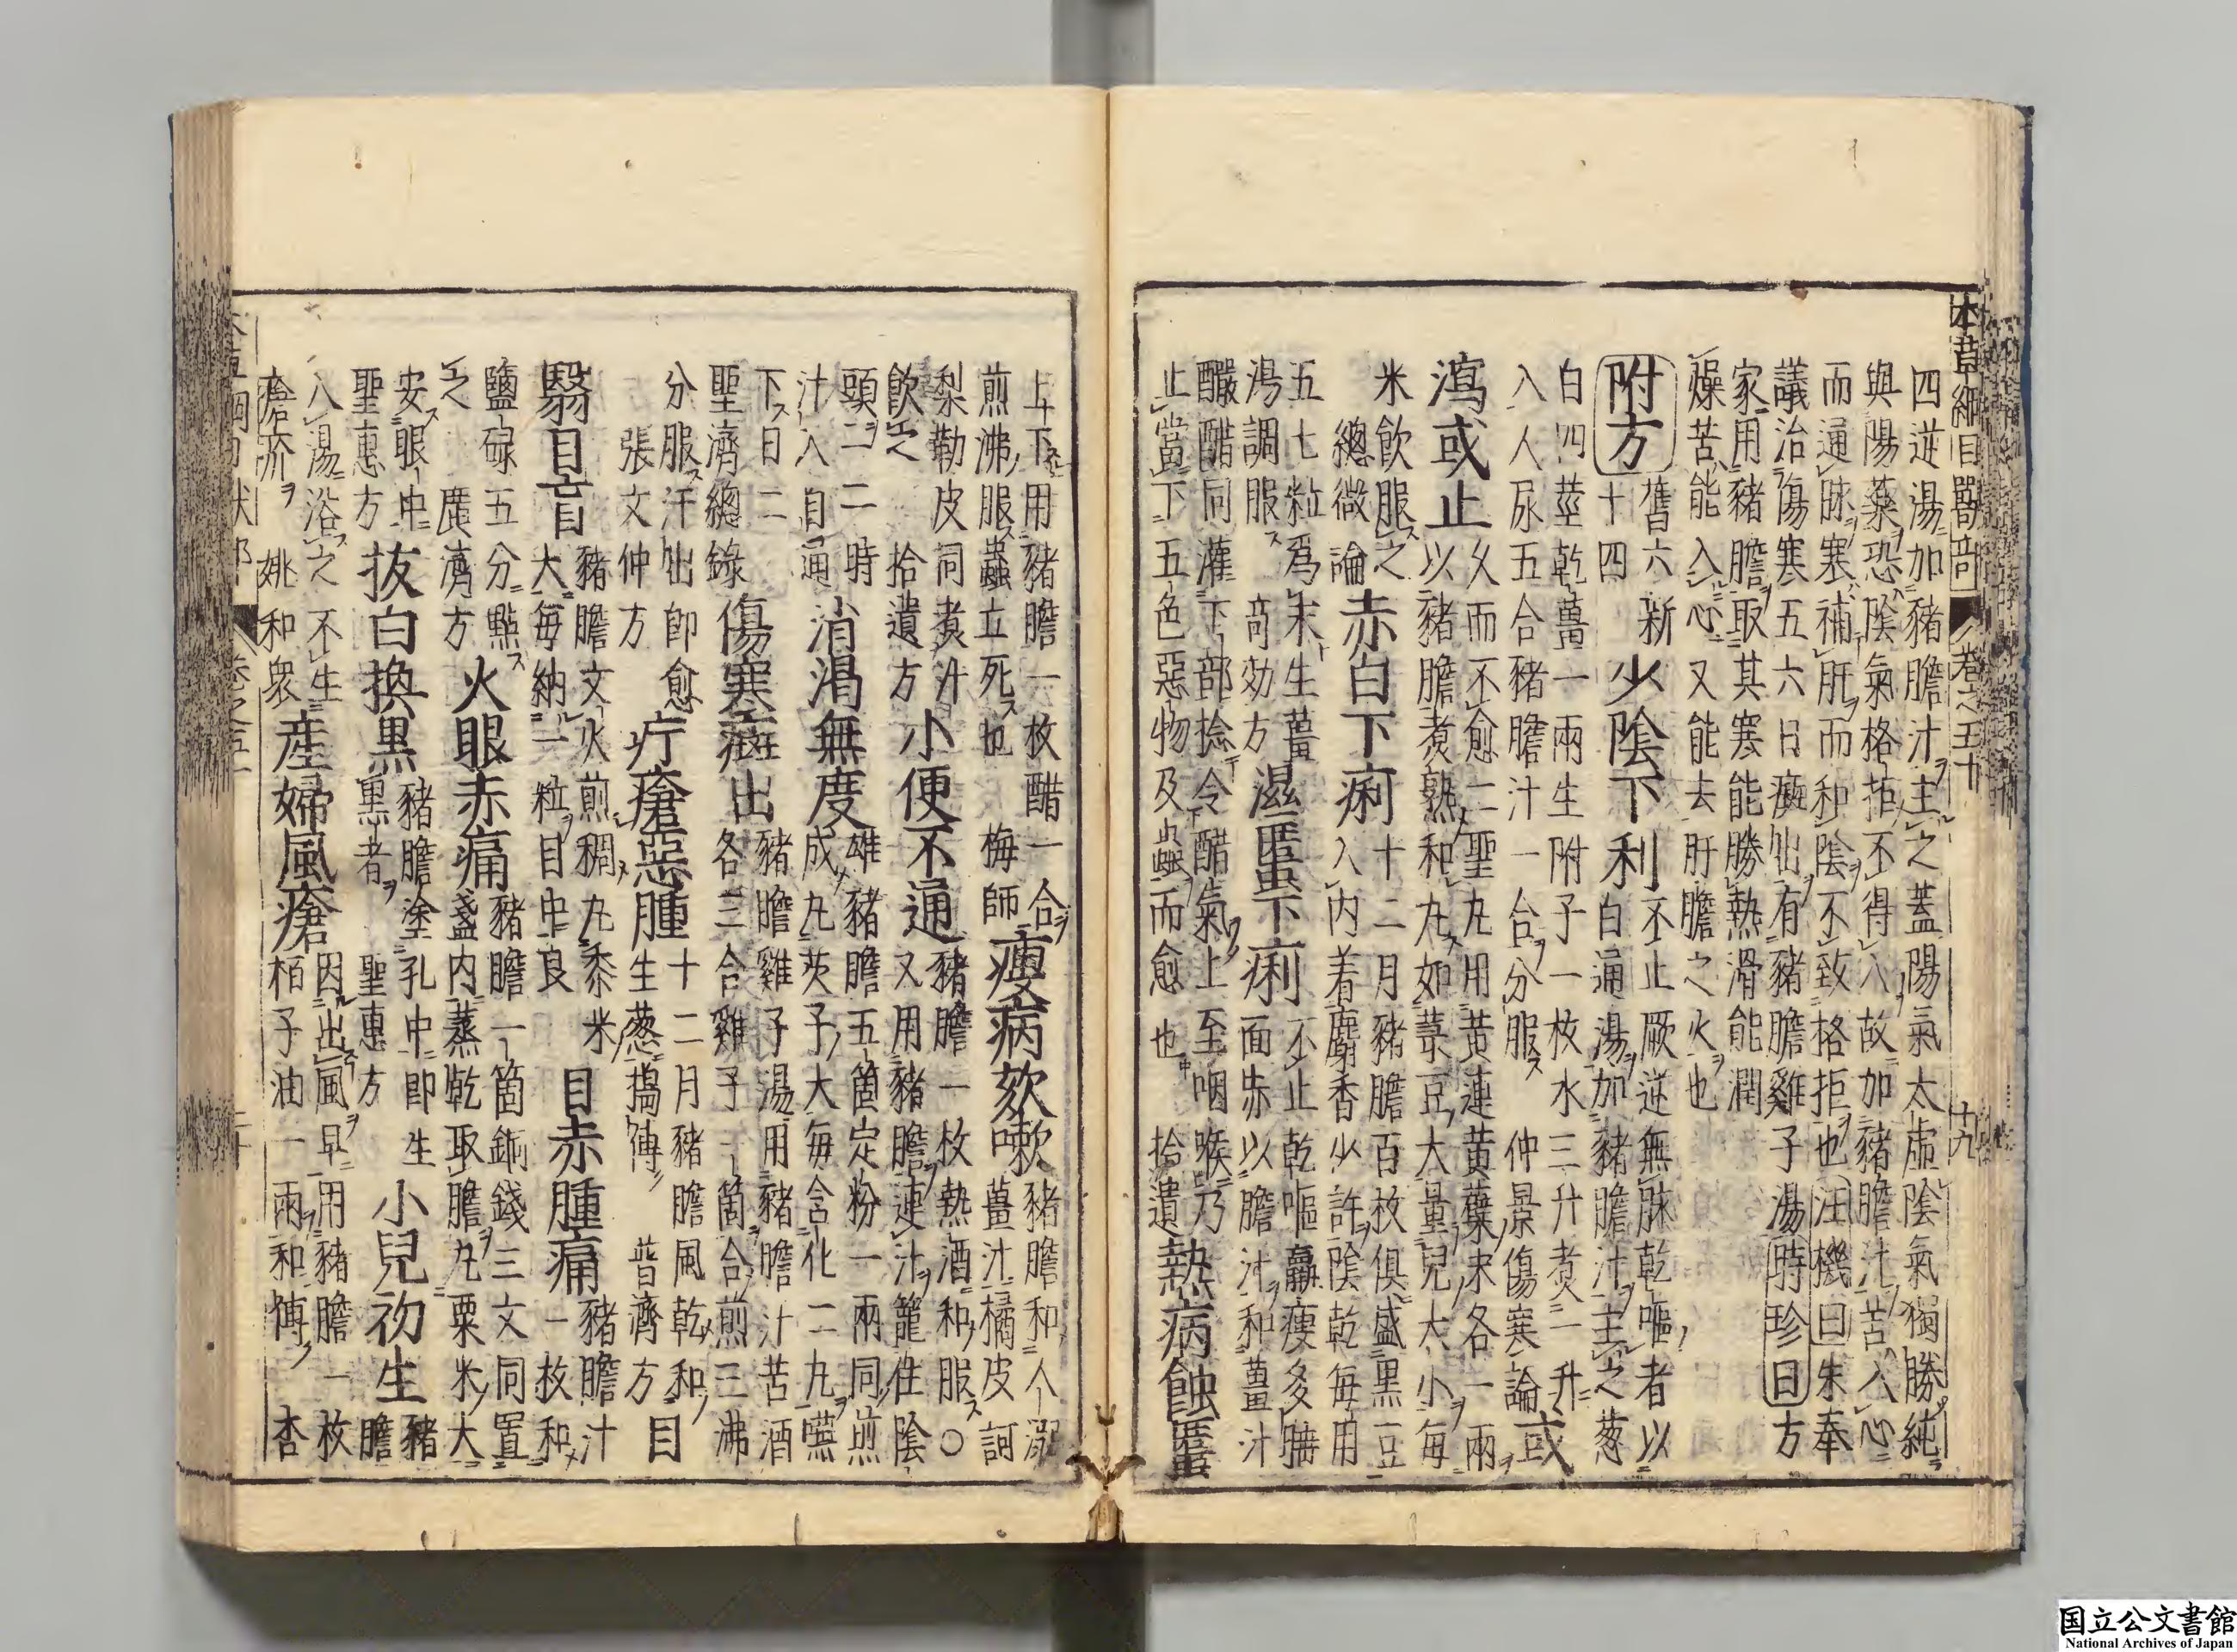 本草綱目獸部 卷之五十 十九
四逆湯加豬膽汁主之蓋陽氣太虛陰氣獨勝純
與陽藥恐陰氣格拒不得入故加豬膽汁苦入心
而通脉寒補肝而和陰不致格拒也汪機曰朱奉
議治傷寒五六日癍出有豬膽雞子湯時珍曰方
家用豬膽取其寒能勝熱滑能潤
燥苦能入心又能去肝膽之火也
附方 舊六新十四 少陰下利 不止厥逆無脉乾嘔者以
白通湯加豬膽汁主之葱
白四莖乾薑一兩生附子一枚水三升煮一升
入人尿五合豬膽汁一合分服 仲景傷寒論 或
瀉或止 久而不愈二聖丸用黃連黃蘗末各一兩
以豬膽煮熟和丸如菉豆大量兒大小每
米飲服之 總微論 赤白下痢 十二月豬膽百枚俱盛黑豆
入內着麝香少許陰乾每用
五七粒爲末生薑
湯調服 奇効方 濕䘌下痢 不止乾嘔羸瘦多睡
面赤以膽汁和薑汁
釅醋同灌下部捻令醋氣上至咽喉乃
止當下五色惡物及蟲而愈也 拾遺 熱病蝕䘌
上下用豬膽一枚醋一合
煎沸服蟲立死也 梅師 瘦病欬嗽 豬膽和人溺
薑汁橘皮訶
梨勒皮同煮汁
飲之 拾遺方 小便不通 豬膽一枚熱酒和服○
又用豬膽連汁籠住陰
頭一二時
汁入自通 消渴無度 雄豬膽五箇定粉一兩同煎
成丸芡子大每含化二丸嚥
下日二
聖濟總錄 傷寒癍出 豬膽雞子湯用豬膽汁苦酒
各三合雞子一箇合煎三沸
分服汗出卽愈
張文仲方 疔瘡惡腫 十二月豬膽風乾和
生葱搗傅 普濟方 目
翳目盲 豬膽文火煎稠丸黍米
大每納一粒目中良 目赤腫痛 豬膽汁
一枚和
鹽碌五分點
之 廣濟方 火眼赤痛 豬膽一箇銅錢三文同置
盞內蒸乾取膽丸粟米大
安眼中
聖惠方 拔白換黑 豬膽塗孔中卽生
黑者 聖惠方 小兒初生 豬
膽
入湯浴之不生
瘡疥 姚和衆 產婦風瘡 因出風早用豬膽一枚
栢子油一兩和傅 杏
国立公文書館
National Archives of Japan